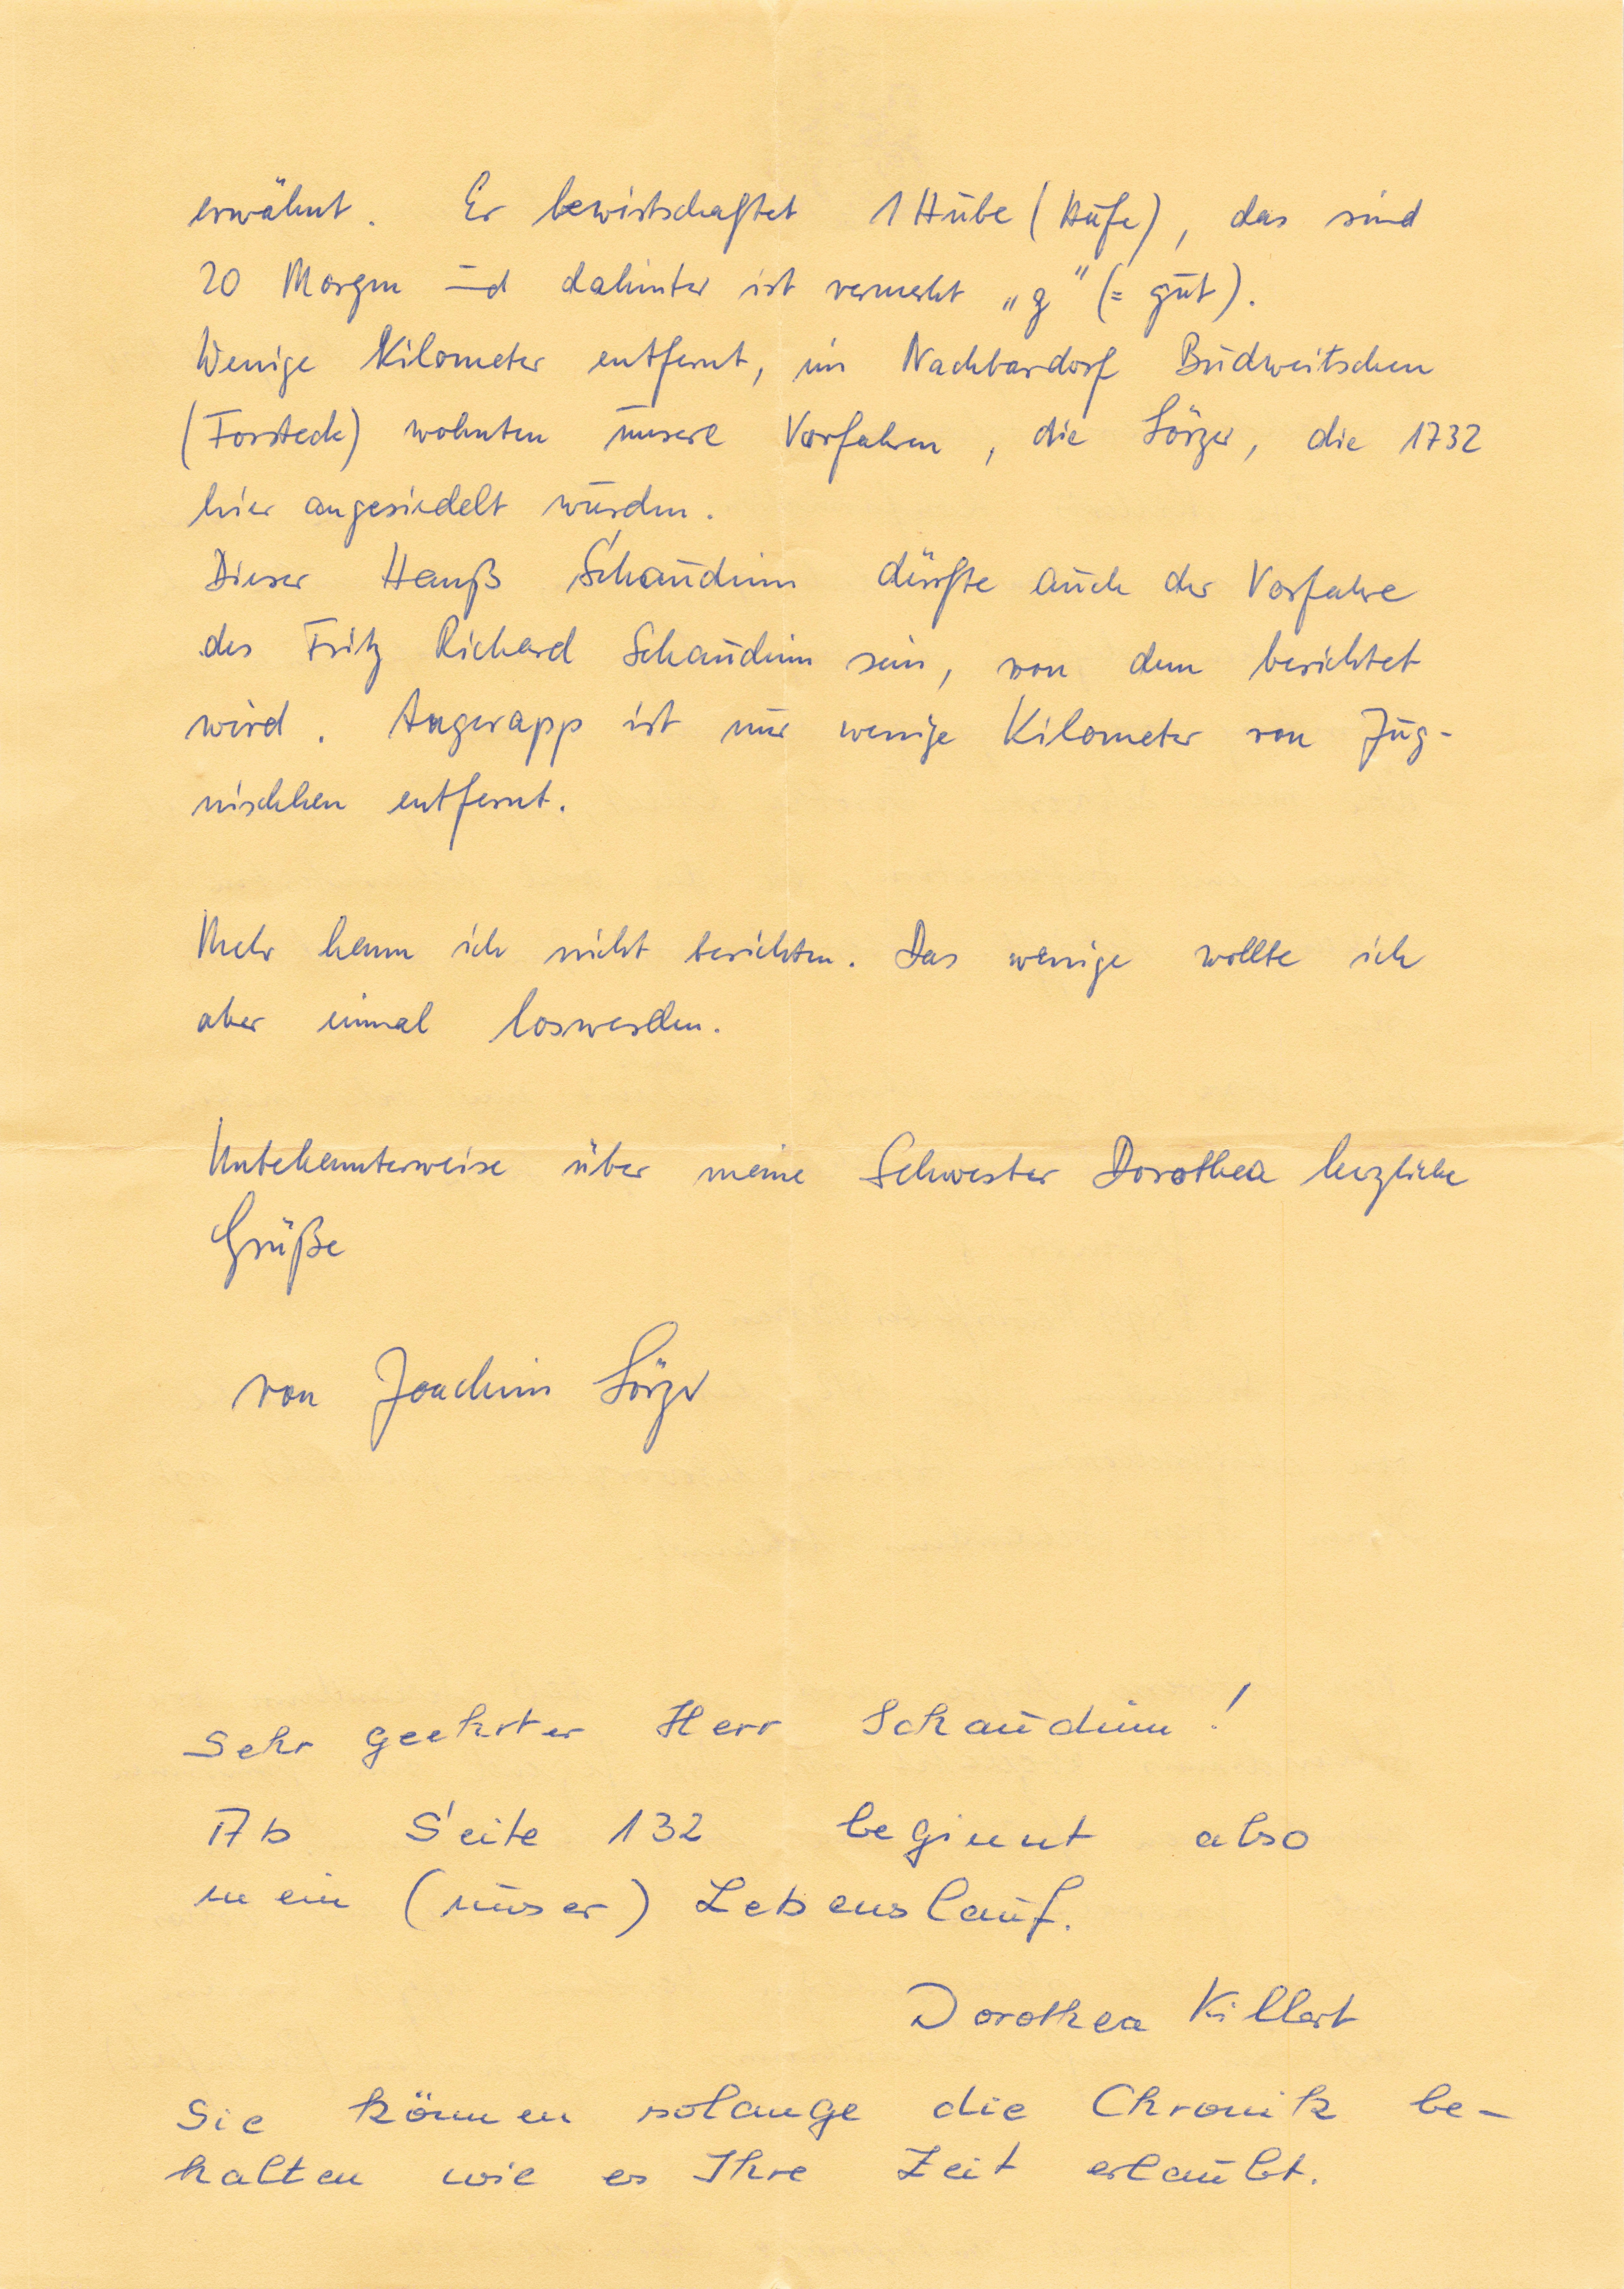 erwähnt. Er bewirtschaftet 1 Hube (Hufe), das sind
20 Morgen und dahinter ist vermerkt „g" (= gut).
Wenige Kilometer entfernt, im Nachbardorf Budweitschen
(Forsteck) wohnten unsere Vorfahren, die Sörzer, die 1732
hier angesiedelt wurden.
Dieser Hanß Schaudinn dürfte auch der Vorfahre
des Fritz Richard Schaudinn sein, von dem berichtet
wird. Angerapp ist nur wenige Kilometer von Jug-
nischken entfernt.
Mehr kann ich nicht berichten. Das wenige wollte ich
aber einmal loswerden.
Unbekannterweise über meine Schwester Dorothea herzliche
Grüße
von Joachim Sörzer
Sehr geehrter Herr Schaudinn!
Ab Seite 132 beginnt also
mein (unser) Lebenslauf.
Dorothea Killert
Sie können solange die Chronik be-
halten wie es Ihre Zeit erlaubt.